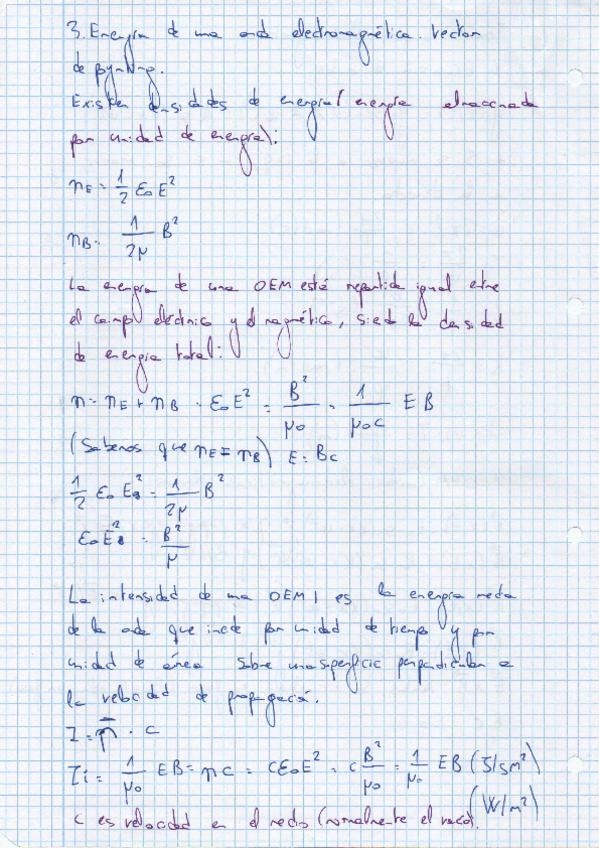 3. Energía de una onda electromagnética. Vector
de Pynting.
Existen densidades de energía (energía almacenada
por unidad de energía):
n_E = 1/2 ε₀E²
n_B = 1/2μ B²
La energía de una OEM está repartida igual etre
el campo eléctrico y el magnético, siedo la densidad
de energía total:
n = n_E + n_B = ε₀E² = B²/μ₀ = 1/μ₀c EB
(Sabemos que n_E = n_B) E = Bc
1/2 ε₀E² = 1/2μ B²
ε₀E² = B²/μ
La intensidad de una OEM I es la energía media
de la onda que incide por unidad de tiempo y por
unidad de área sobre una superficie perpendicular a
la velocidad de propagación.
I = n̄ · c
I_i = 1/μ₀ EB = nc = cε₀E² = c B²/μ₀ = 1/μ₀ EB (J/sm²)
(W/m²)
c es velocidad en el medio (normalmente el vacío).